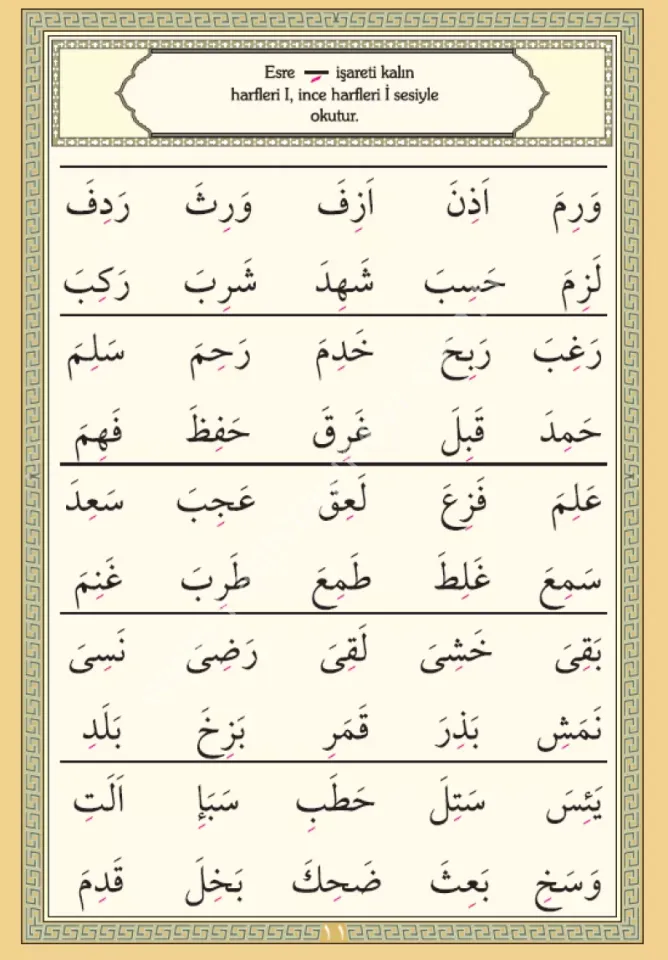 Esre ـِ işareti kalın
harfleri I, ince harfleri İ sesiyle
okutur.
وَرِمَ اَذِنَ اَزِفَ وَرِثَ رَدِفَ
لَزِمَ حَسِبَ شَهِدَ شَرِبَ رَكِبَ
رَغِبَ رَبِحَ خَدِمَ رَحِمَ سَلِمَ
حَمِدَ قَبِلَ غَرِقَ حَفِظَ فَهِمَ
عَلِمَ فَزِعَ لَعِقَ عَجِبَ سَعِدَ
سَمِعَ غَلِطَ طَمِعَ طَرِبَ غَنِمَ
بَقِىَ خَشِىَ لَقِىَ رَضِىَ نَسِىَ
نَمَشِ بَذِرَ قَمَرِ بَزِخَ بَلَدِ
يَئِسَ سَتِلَ حَطَبِ سَبَإِ اَلَتِ
وَسَخِ بَعِثَ ضَحِكَ بَخِلَ قَدِمَ
١١